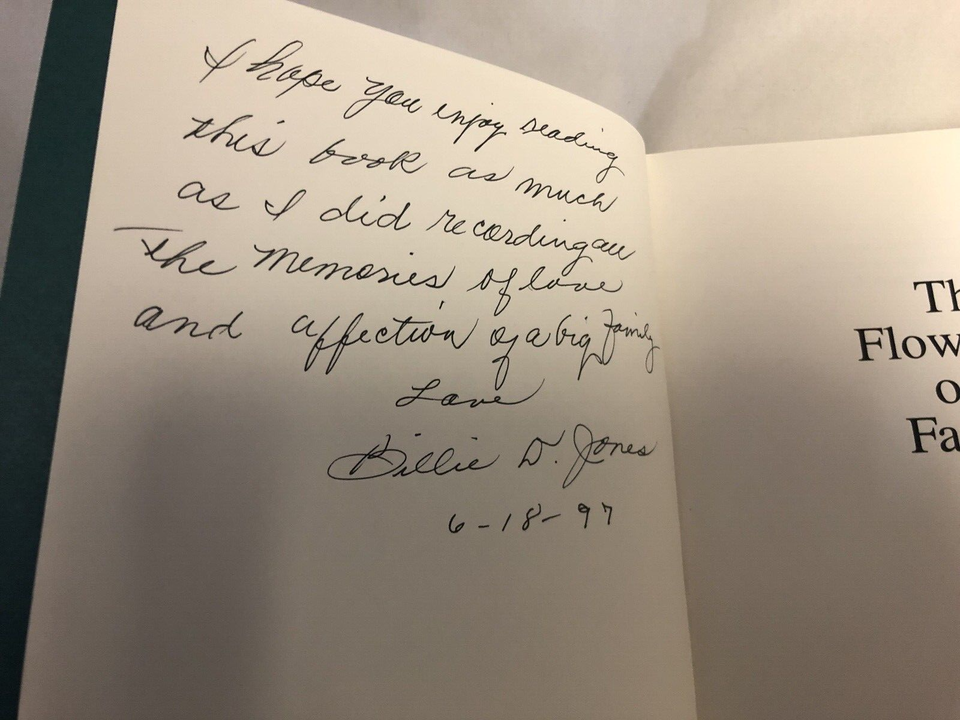 I hope you enjoy reading
this book as much
as I did recording all
The Memories of love
and affection of a big Family
Love
Billie D. Jones
6-18-97
Th
Flow
o
Fa